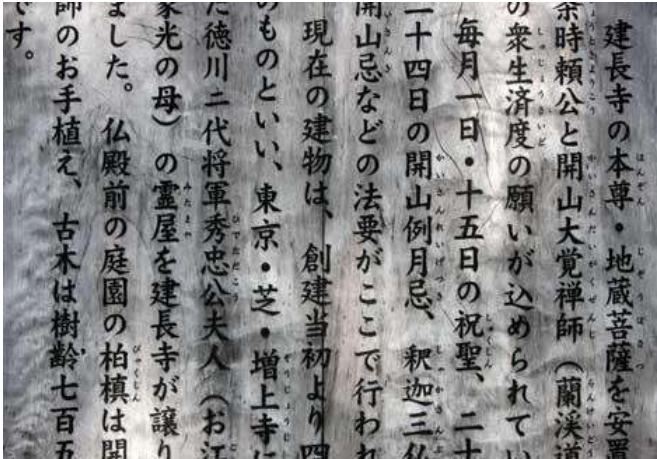 建長寺の本尊・地蔵菩薩を安置
条時頼公と開山大覚禅師（蘭渓道
の衆生済度の願いが込められてい
毎月一日・十五日の祝聖、二十
二十四日の開山例月忌、釈迦三仏
開山忌などの法要がここで行われ
現在の建物は、創建当初より四
のものといい、東京・芝・増上寺に
た徳川二代将軍秀忠公夫人（お江
家光の母）の霊屋を建長寺が譲り
ました。仏殿前の庭園の柏槇は開
師のお手植え、古木は樹齢七百五
です。